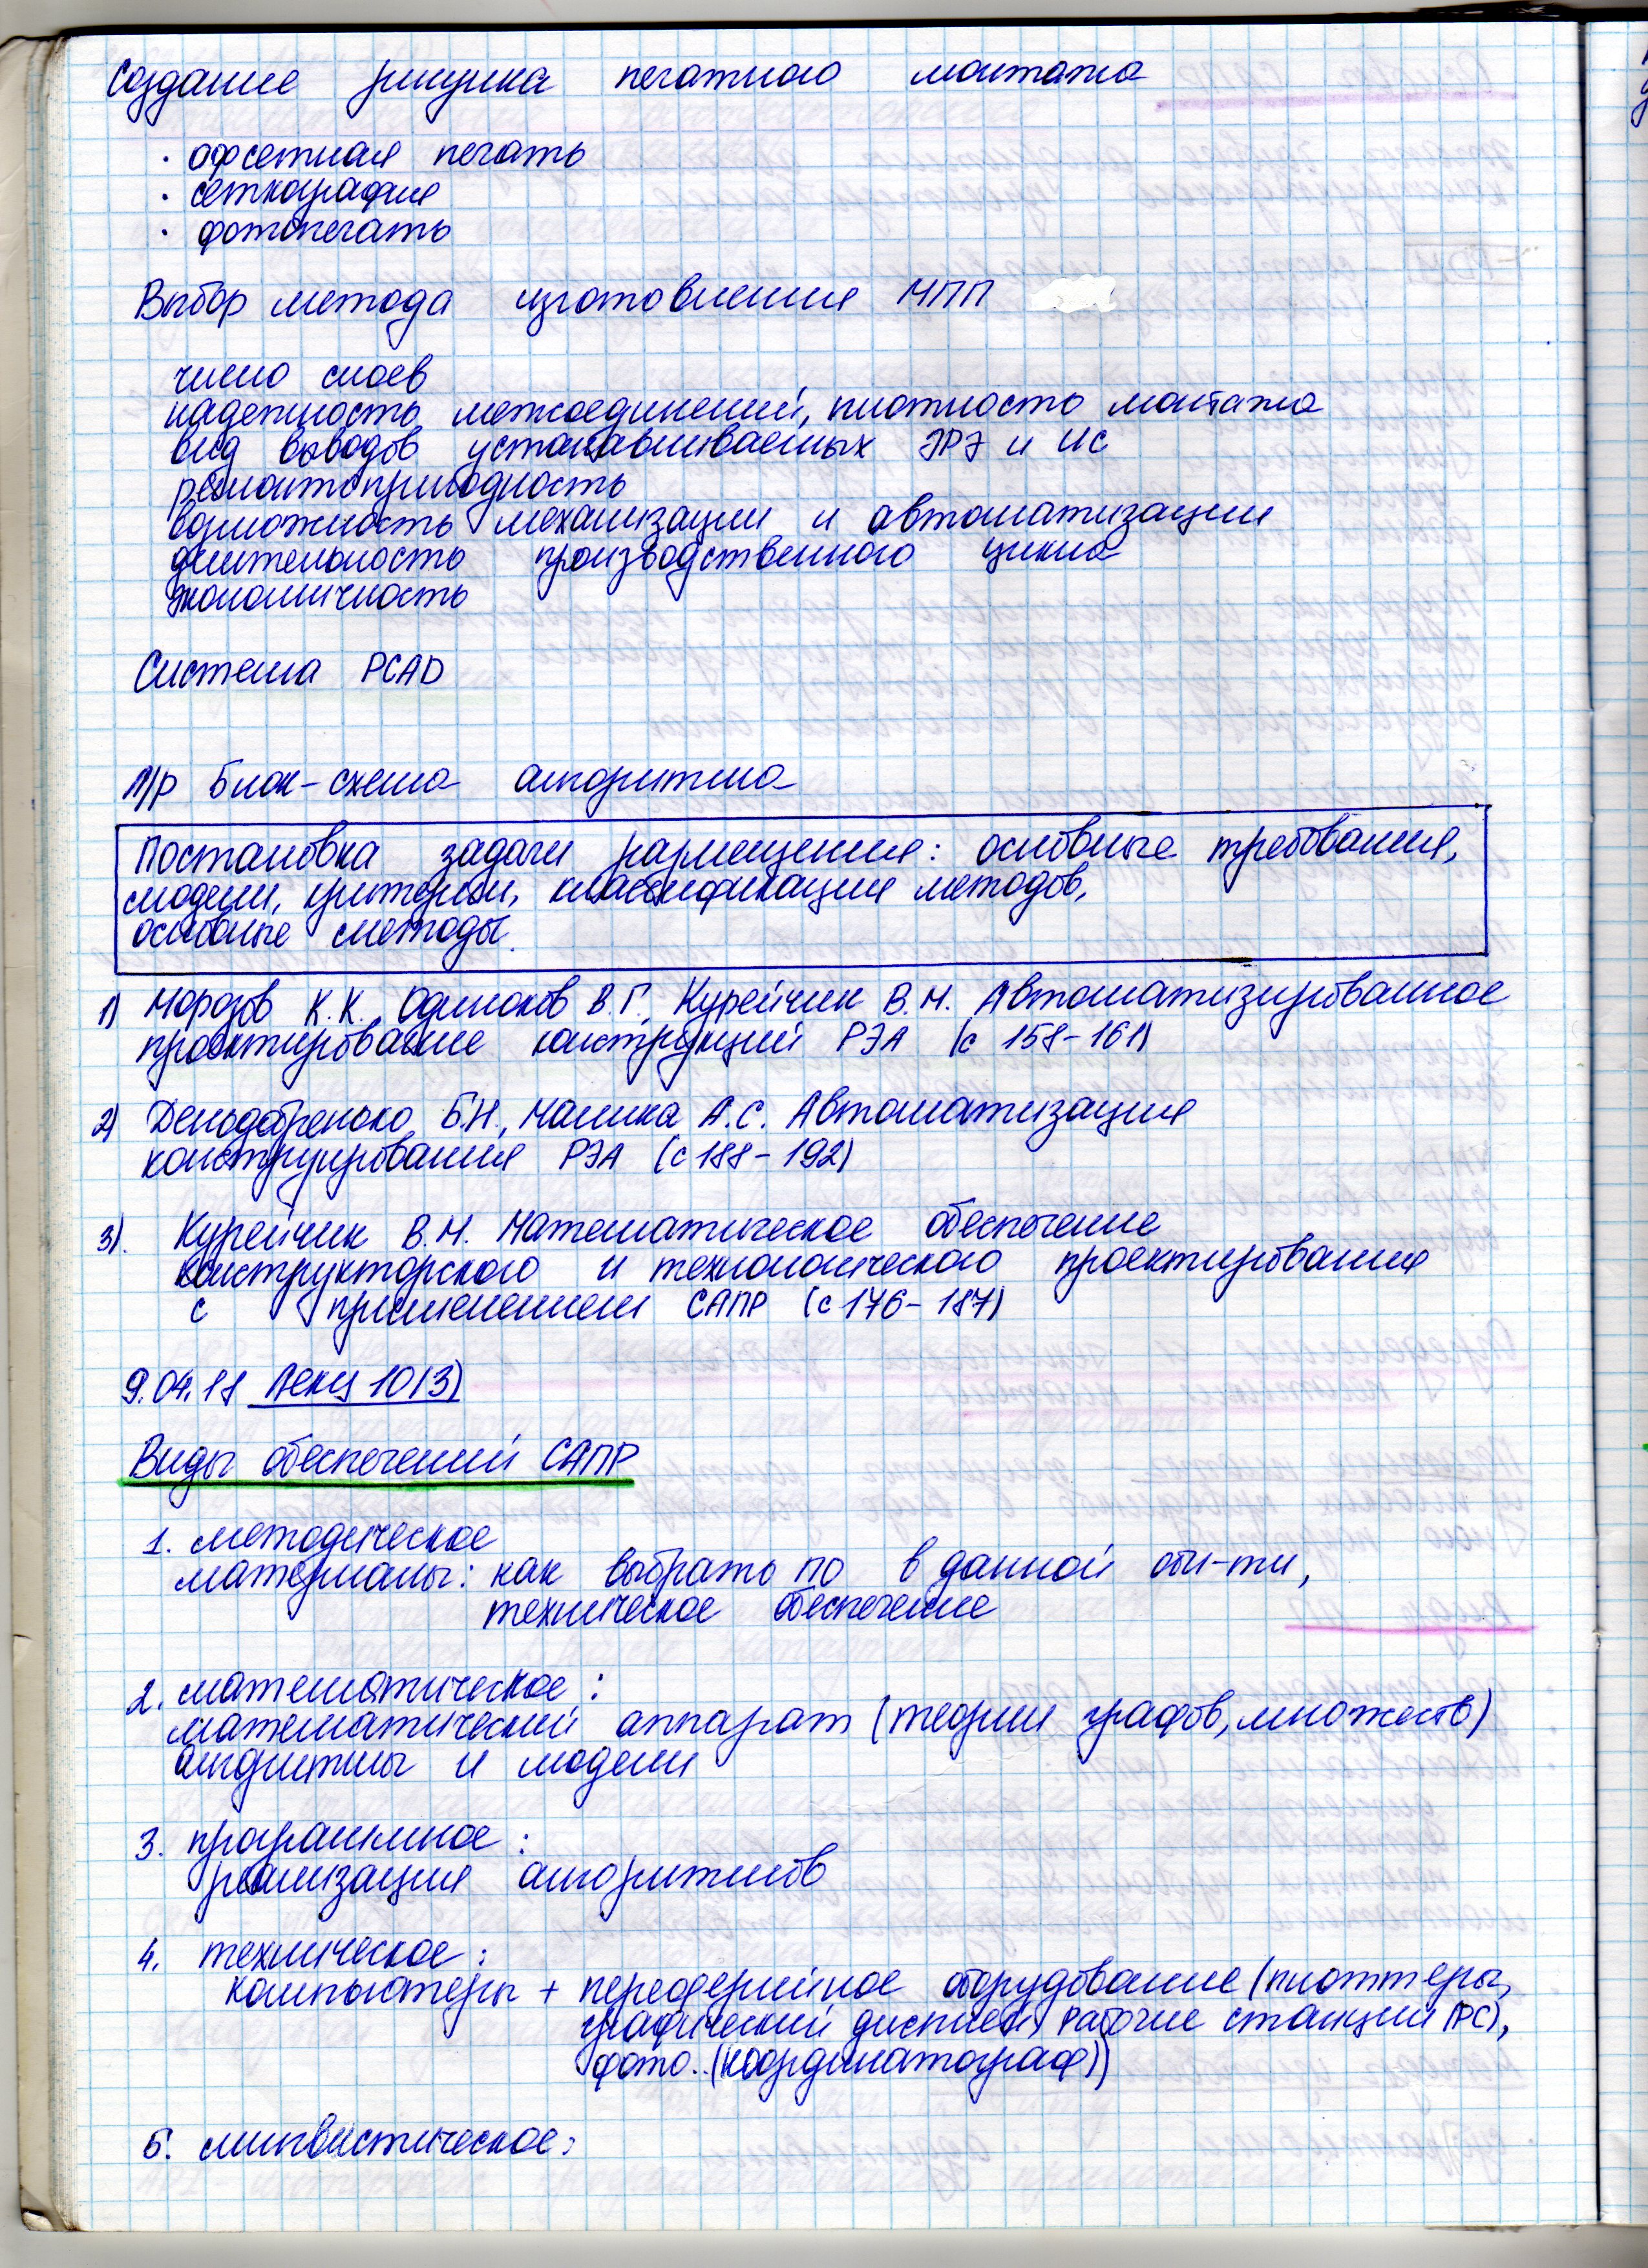 Создание рисунка печатного монтажа
· офсетная печать
· сеткография
· фотопечать
Выбор метода изготовления МПП
число слоев
надежность межсоединений, плотность монтажа
вид выводов устанавливаемых ЭРЭ и ИС
ремонтопригодность
возможность механизации и автоматизации
длительность производственного цикла
экономичность
Система PCAD
П/р Блок-схема алгоритма
Постановка задачи размещения: основные требования,
модели, критерии, классификация методов,
основные методы.
1) Морозов К.К., Одиноков В.Г., Курейчик В.М. Автоматизированное
проектирование конструкций РЭА (с 158-161)
2) Деньдобренько Б.Н., Малика А.С. Автоматизация
конструирования РЭА (с 188-192)
3). Курейчик В.М. Математическое обеспечение
конструкторского и технологического проектирования
с применением САПР (с 176-187)
9.04.18 Лекц 10(3)
Виды обеспечений САПР
1. методическое
материалы: как выбрать ПО в данной обл-ти,
техническое обеспечение
2. математическое:
математический аппарат (теории графов, множеств)
алгоритмы и модели
3. программное:
реализация алгоритмов
4. техническое:
компьютеры + переферийное оборудование (плоттеры,
графический дисплей, рабочие станции (РС),
фото..(координатограф))
5. лингвистическое: